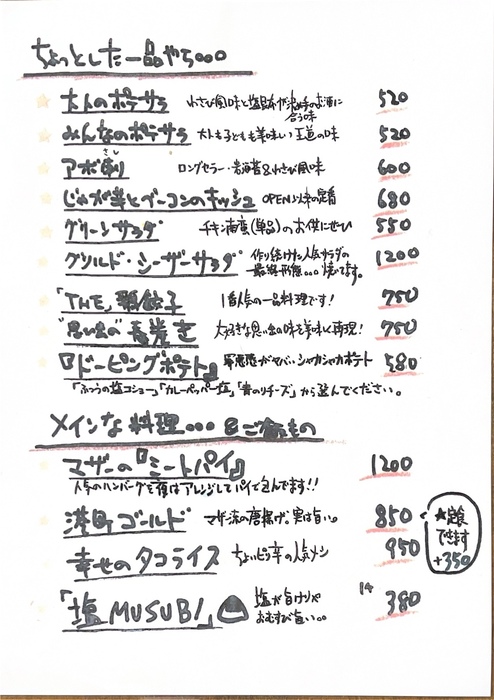 ちょっとした一品やら。。。
大人のポテサラ わさび風味と塩 お酒に合う味 520
みんなのポテサラ 大人も子どもも美味しい王道の味 520
アボ刺(さし) ロングセラー・岩海苔&わさび風味 600
じゃが芋とベーコンのキッシュ OPEN以来の定番 680
グリーンサラダ チキン南蛮(単品)のお供にぜひ 550
グリルド・シーザーサラダ 作り続けた人気サラダの
最終形態。。。焼いてます。 1200
「THE」餃子 1番人気の一品料理です! 750
"思い出の"春巻き 大好きな思い出の味を美味しく再現! 750
『ドーピングポテト』 罪悪感がヤバいシャカシャカポテト 580
「ふつうの塩コショー」「カレーペッパー塩」「青のりチーズ」から選んでください。
メインな料理。。。&ごはんもの
マザーの『ミートパイ』 1200
人気のハンバーグを夜はアレンジしてパイで包んでます!!
港町ゴールド マザー流の唐揚げ。実は旨い。 850
★定食
できます
+350
幸せのタコライス ちょいピリ辛の人気メシ 950
「塩MUSUBI」 塩が旨けりゃ
おむすび旨い。。 1ヶ 380